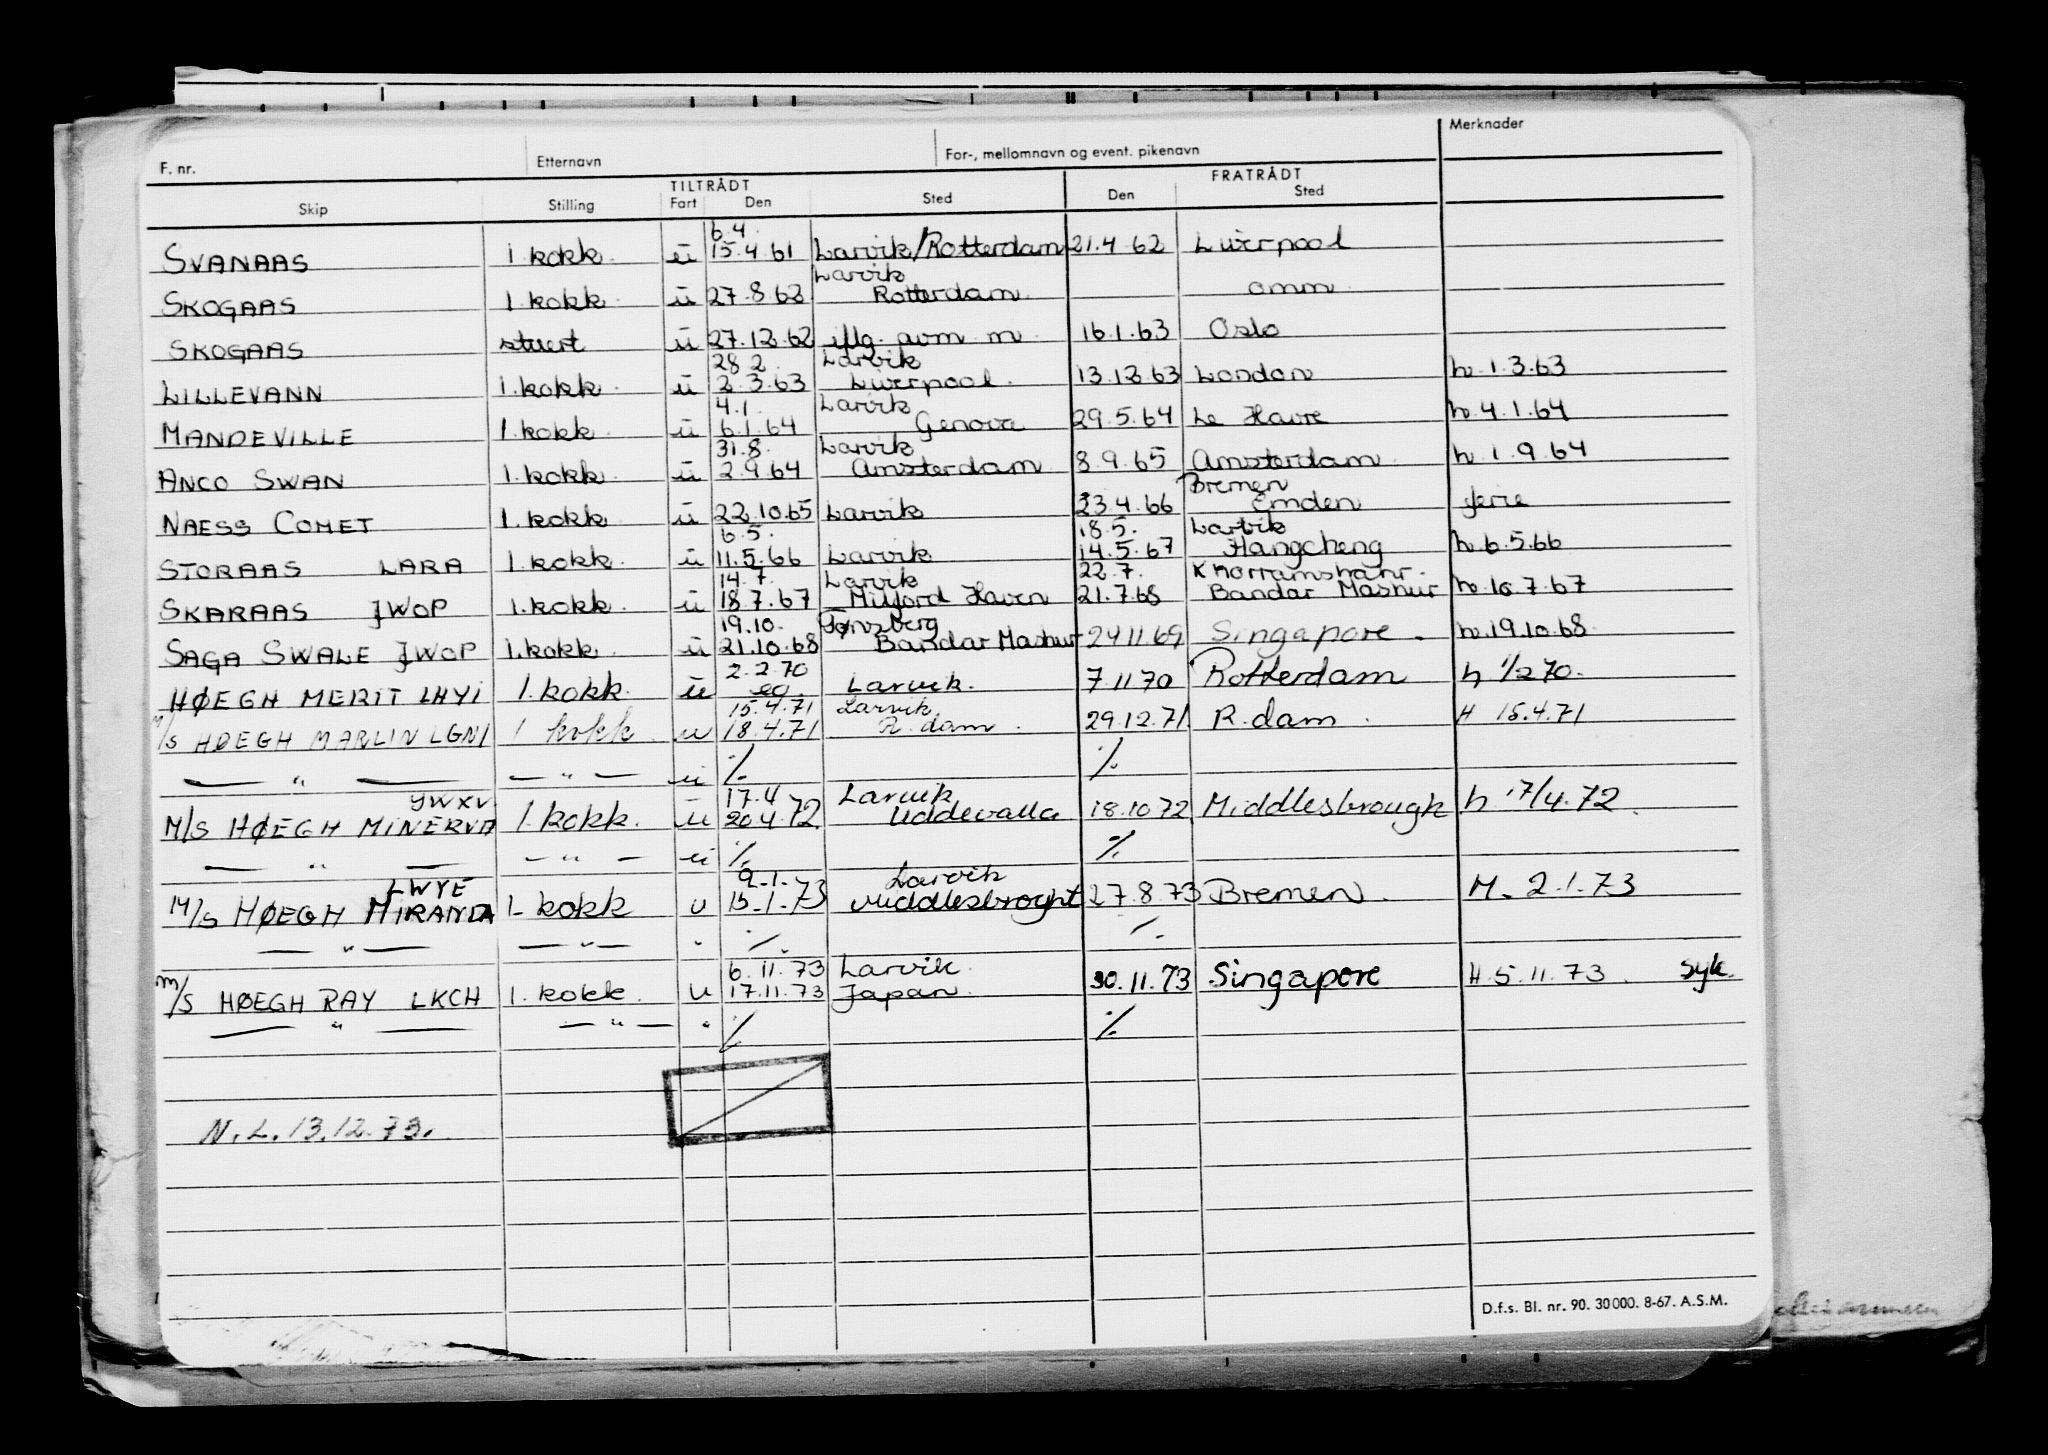 F. nr. Etternavn For-, mellomnavn og event. pikenavn Merknader
TILTRÅDT FRATRÅDT
Skip Stilling Fart Den Sted Den Sted
6.4.
SVANAAS 1 kokk u 15.4.61 Larvik/Rotterdam 21.4.62 Liverpool
Larvik
SKOGAAS 1 kokk u 27.8.62 Rotterdam omm
SKOGAAS stuert u 27.12.62 iflg. avm. m 16.1.63 Oslo
28.2. Larvik
LILLEVANN 1. kokk u 2.3.63 Liverpool. 13.12.63 London h. 1.3.63
4.1. Larvik
MANDEVILLE 1. kokk u 6.1.64 Genova 29.5.64 Le Havre h. 4.1.64
31.8. Larvik
ANCO SWAN 1. kokk u 2.9.64 Amsterdam 8.9.65 Amsterdam h. 1.9.64
Bremen
NAESS COMET 1. kokk u 22.10.65 Larvik 23.4.66 Emden ferie
6.5. 18.5. Larvik
STORAAS LARA 1. kokk u 11.5.66 Larvik 14.5.67 Hangcheng h. 6.5.66
14.7. Larvik 22.7. Khorramshahr.
SKARAAS JWOP 1. kokk u 18.7.67 Milford Haven 21.7.68 Bandar Mashur h. 10.7.67
19.10. Tønsberg
SAGA SWALE JWOP 1. kokk u 21.10.68 Bandar Mashur 24.11.69 Singapore. h. 19.10.68
2.2.70
HØEGH MERIT LHYI 1. kokk u Larvik. 7.11.70 Rotterdam h 1/2 70.
15.4.71 Larvik
M/S HØEGH MARLIN LGNI 1 kokk u 18.4.71 R.dam. 29.12.71 R.dam. H 15.4.71
— " — — " — u ./. ./.
JWXV 17.4 Larvik
M/S HØEGH MINERVA 1. kokk. u 20.4.72 Uddevalla 18.10.72 Middlesbrough h 17/4.72.
— " — — " — u ./. ./.
LWYE 2.1.73 Larvik
M/S HØEGH MIRANDA 1. kokk u 15.1.73 Middlesbroght 27.8.73 Bremen. H. 2.1.73
— " — — " — " ./. ./.
6.11.73 Larvik.
M/S HØEGH RAY LKCH 1. kokk. u 17.11.73 Japan. 30.11.73 Singapore H. 5.11.73. syk.
— " — — " — " ./. ./.
N.L. 13.12.73.
D.f.s. Bl. nr. 90. 30000. 8-67. A.S.M.